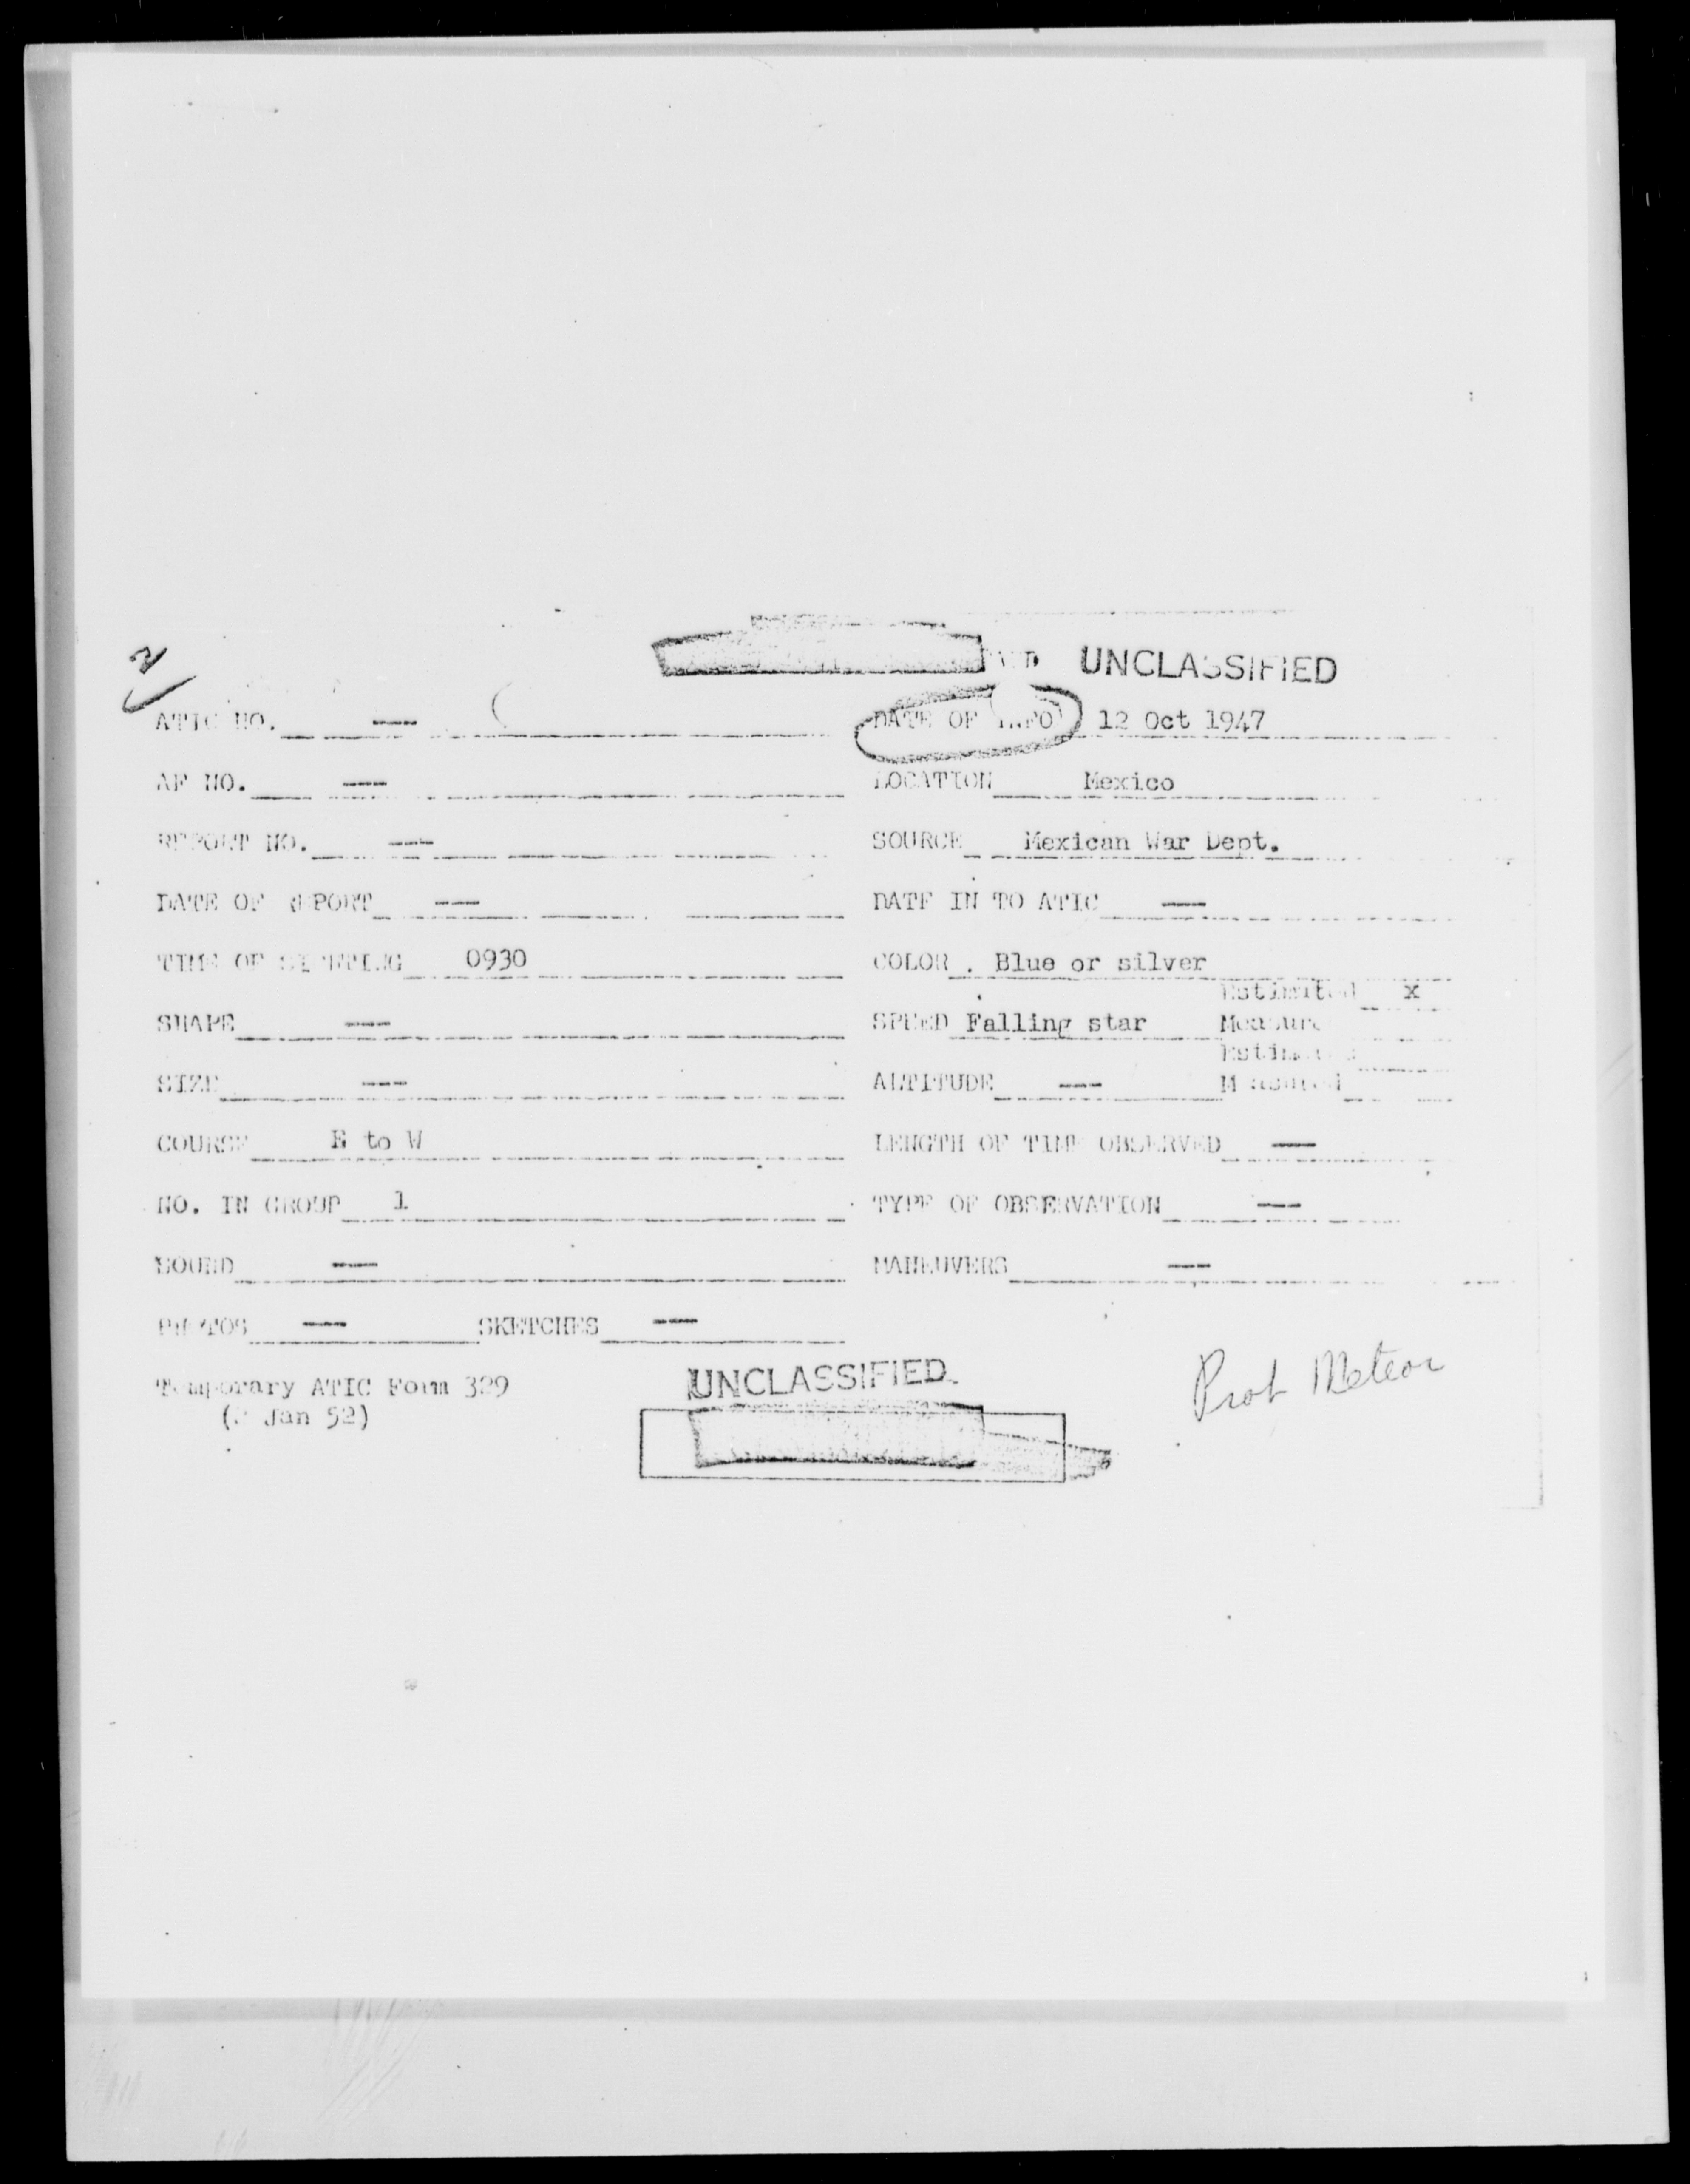 UNCLASSIFIED
ATIC NO. — DATE OF INFO 12 Oct 1947
AF NO. — LOCATION Mexico
REPORT NO. — SOURCE Mexican War Dept.
DATE OF REPORT — DATE IN TO ATIC —
TIME OF SIGHTING 0930 COLOR . Blue or silver
Estimated x
SHAPE — SPEED Falling star Measure
Estimated
SIZE — ALTITUDE — Measured
COURSE E to W LENGTH OF TIME OBSERVED —
NO. IN GROUP 1 TYPE OF OBSERVATION —
SOUND — MANEUVERS —
PHOTOS — SKETCHES —
Temporary ATIC Form 329 UNCLASSIFIED Prob Meteor
Jan 52)